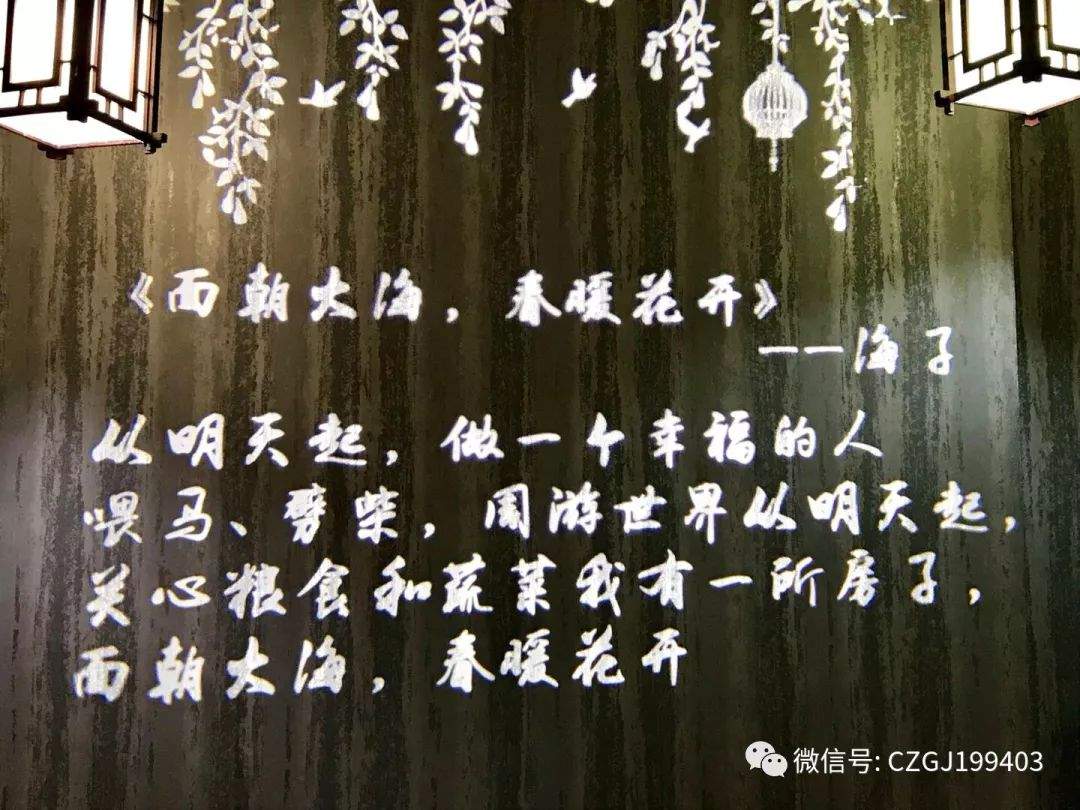 《面朝大海，春暖花开》
——海子
从明天起，做一个幸福的人
喂马、劈柴，周游世界从明天起，
关心粮食和蔬菜我有一所房子，
面朝大海，春暖花开
微信号: CZGJ199403